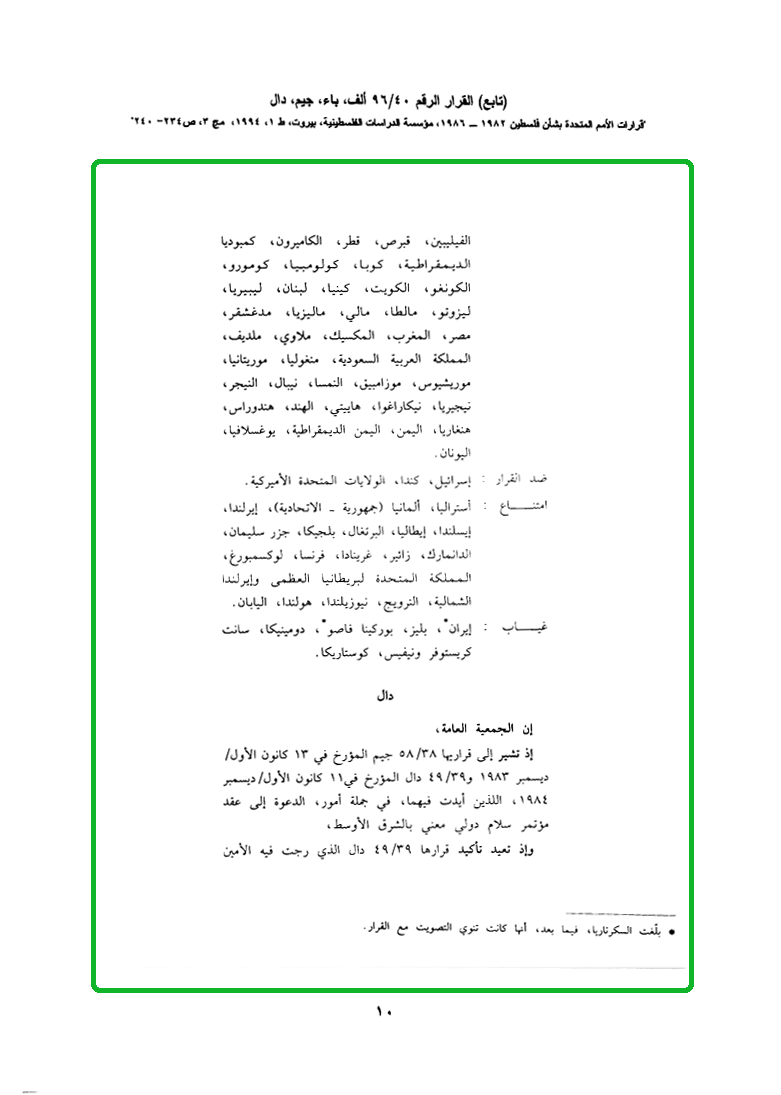 (تابع) القرار الرقم ٩٦/٤٠ ألف، باء، جيم، دال
قرارات الأمم المتحدة بشأن فلسطين ١٩٨٢ ــ ١٩٨٦، مؤسسة الدراسات الفلسطينية، بيروت، ط ١، ١٩٩٤، مج ٣، ص٢٣٤- ٢٤٠
الفيليبين، قبرص، قطر، الكاميرون، كمبوديا
الديمقراطية، كوبا، كولومبيا، كومورو،
الكونغو، الكويت، كينيا، لبنان، ليبيريا،
ليزوتو، مالطا، مالي، ماليزيا، مدغشقر،
مصر، المغرب، المكسيك، ملاوي، ملديف،
المملكة العربية السعودية، منغوليا، موريتانيا،
موريشيوس، موزامبيق، النمسا، نيبال، النيجر،
نيجيريا، نيكاراغوا، هاييتي، الهند، هندوراس،
هنغاريا، اليمن، اليمن الديمقراطية، يوغسلافيا،
اليونان.
ضد القرار : إسرائيل، كندا، الولايات المتحدة الأميركية.
امتنـــــاع : أستراليا، ألمانيا (جمهورية ـ الاتحادية)، إيرلندا،
إيسلندا، إيطاليا، البرتغال، بلجيكا، جزر سليمان،
الدانمارك، زائير، غرينادا، فرنسا، لوكسمبورغ،
المملكة المتحدة لبريطانيا العظمى وإيرلندا
الشمالية، النرويج، نيوزيلندا، هولندا، اليابان.
غيـــــاب : إيران*، بليز، بوركينا فاصو*، دومينيكا، سانت
كريستوفر ونيفيس، كوستاريكا.
دال
إن الجمعية العامة،
إذ تشير إلى قراريها ٥٨/٣٨ جيم المؤرخ في ١٣ كانون الأول/
ديسمبر ١٩٨٣ و٤٩/٣٩ دال المؤرخ في١١ كانون الأول/ديسمبر
١٩٨٤، اللذين أيدت فيهما، في جملة أمور، الدعوة إلى عقد
مؤتمر سلام دولي معني بالشرق الأوسط،
وإذ تعيد تأكيد قرارها ٤٩/٣٩ دال الذي رجت فيه الأمين
• بلّغت السكرتاريا، فيما بعد، أنها كانت تنوي التصويت مع القرار.
١٠